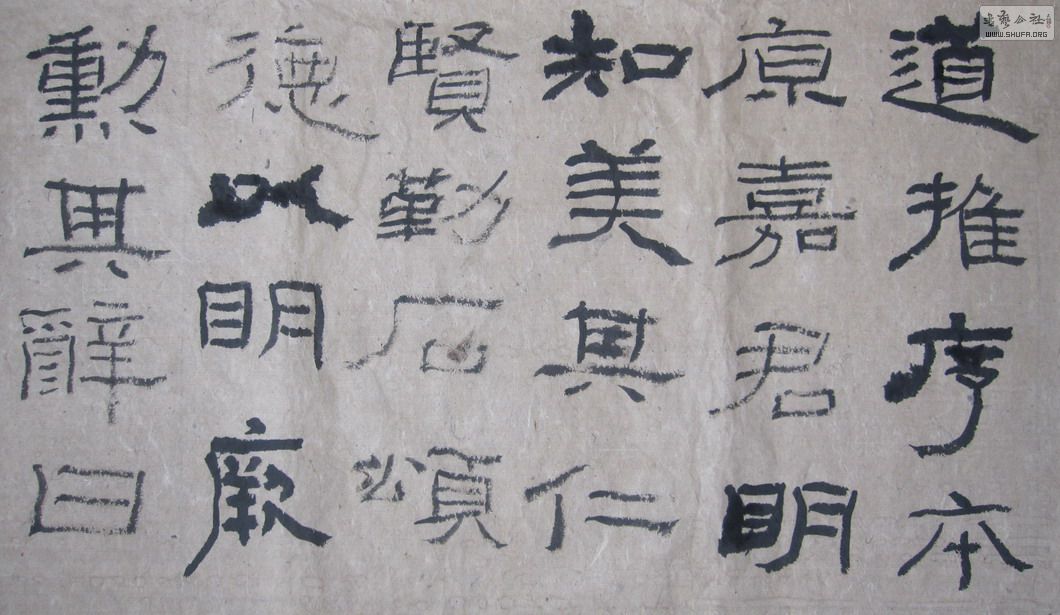 道推序本
原嘉君明
知美其仁
賢勒石頌
德以明厥
勳其辭曰
书艺公社
WWW.SHUFA.ORG